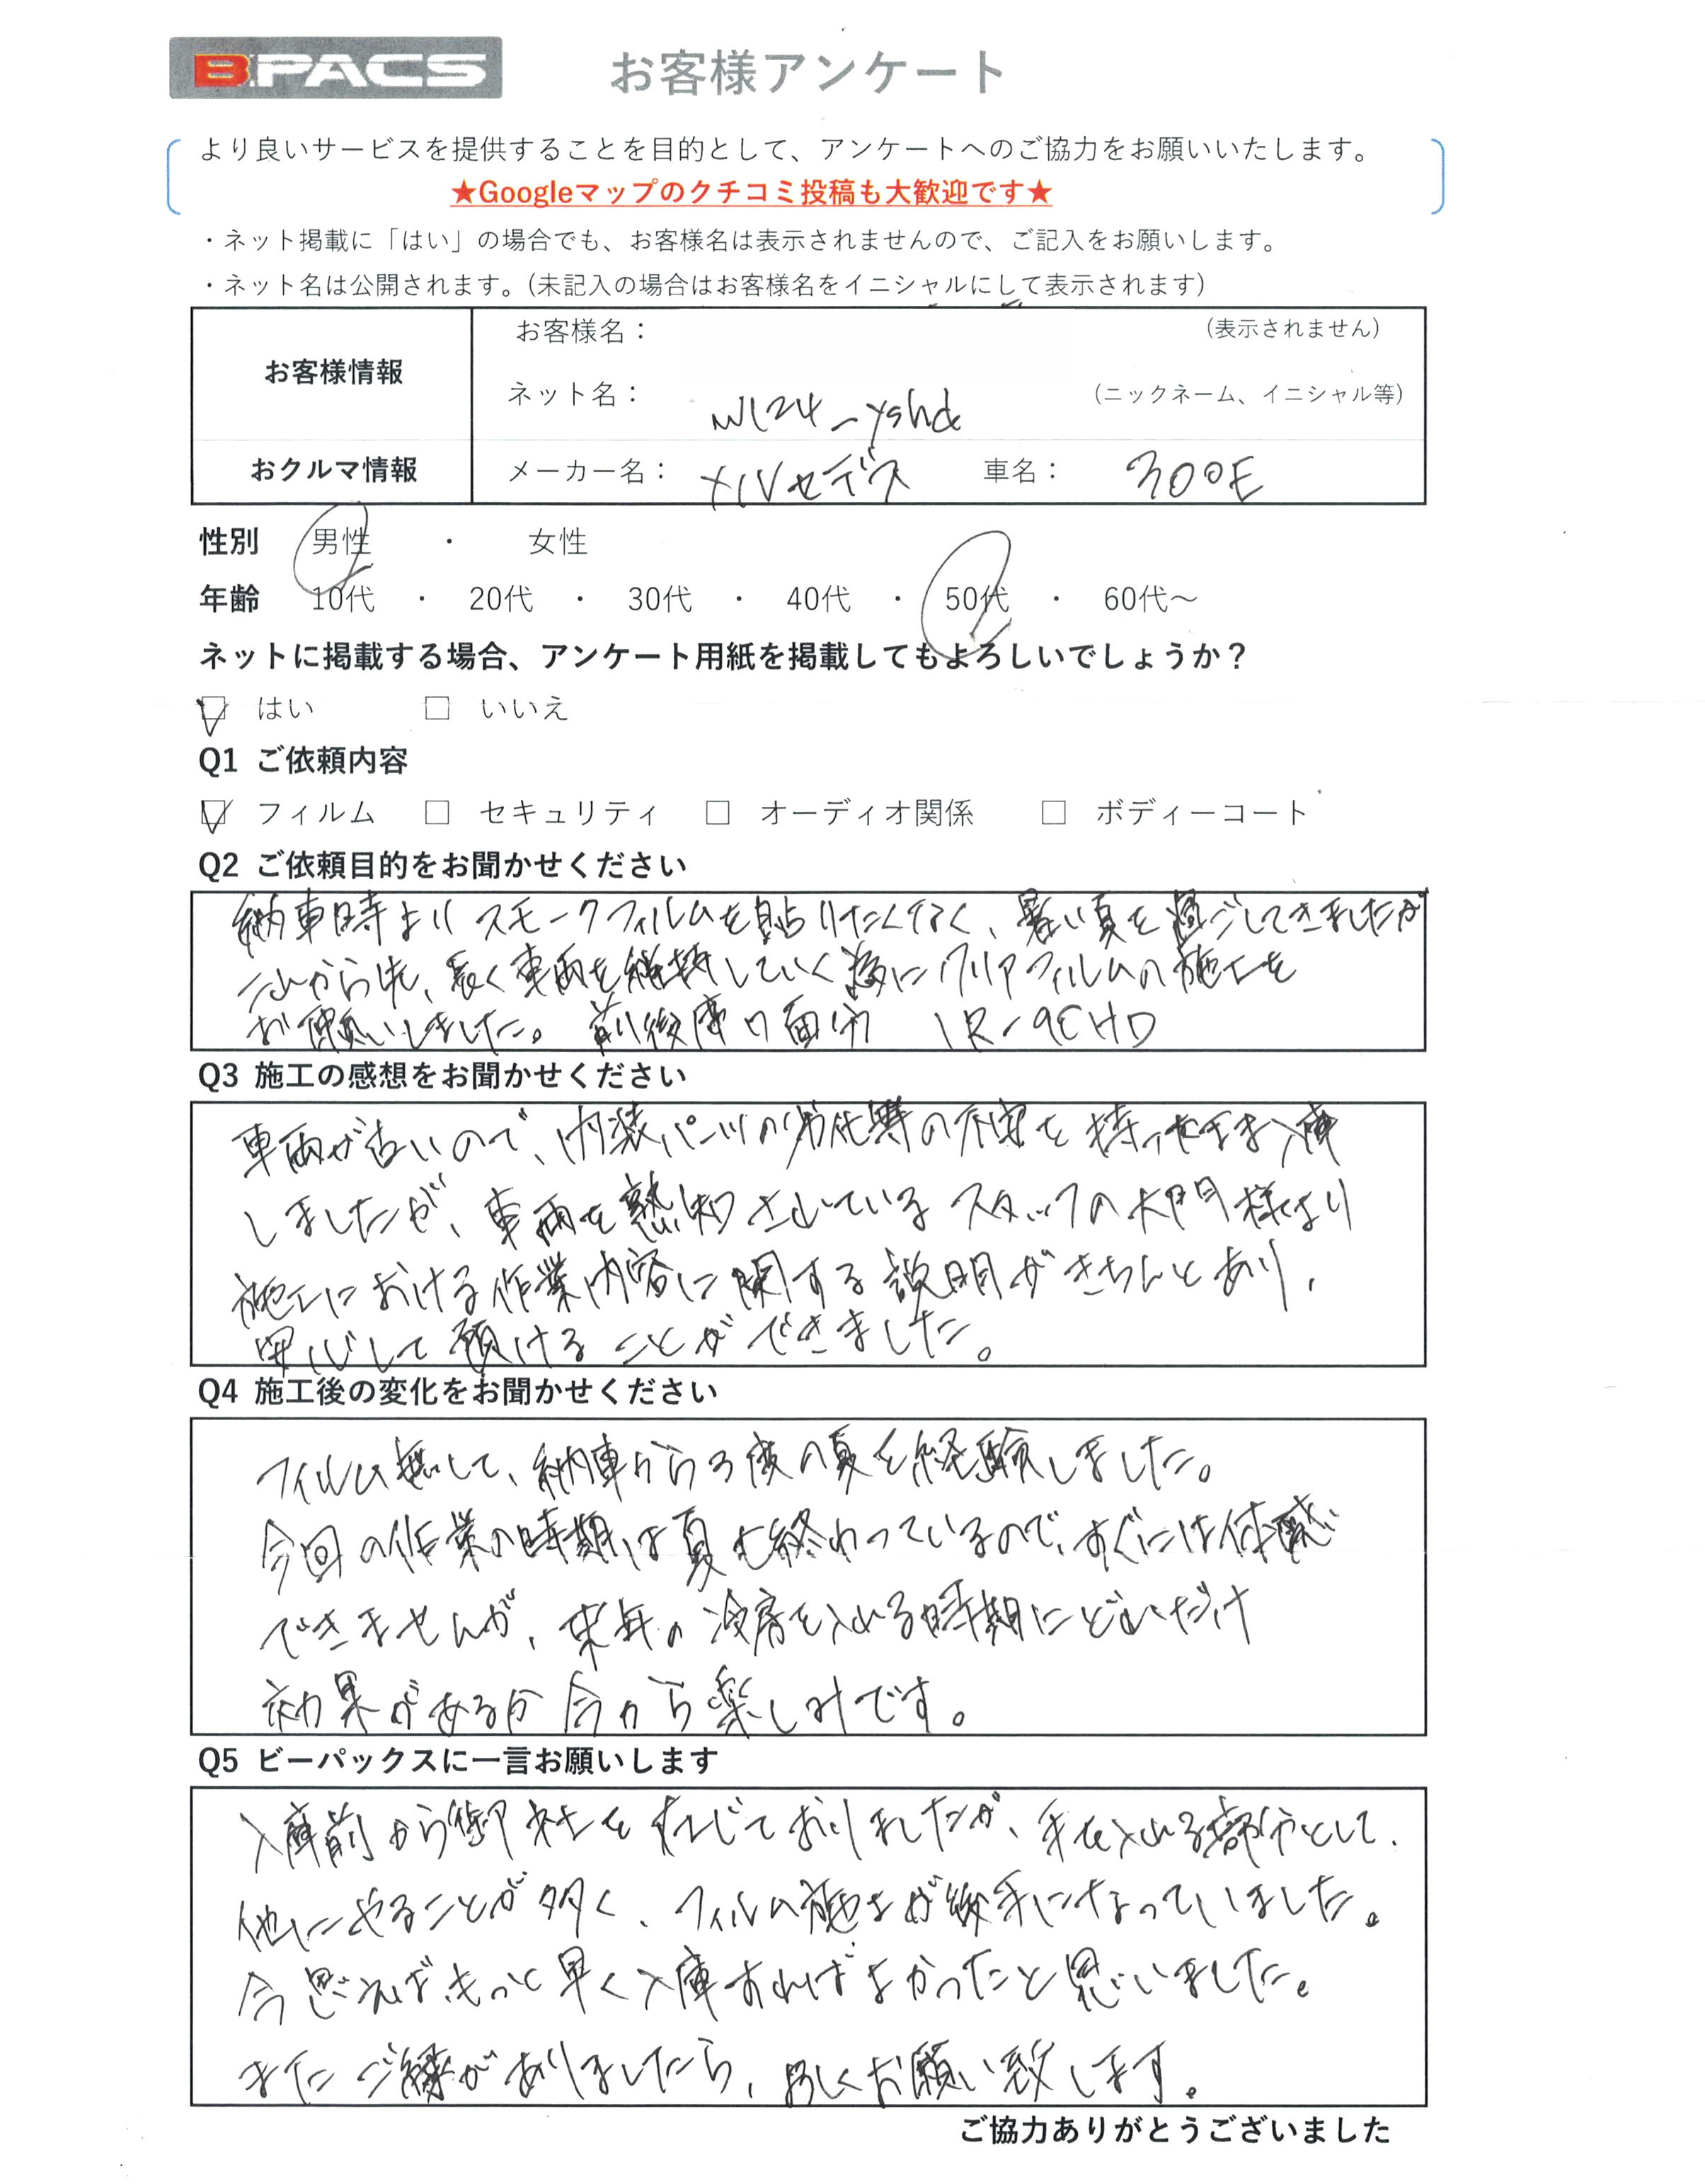 B-PACS お客様アンケート
より良いサービスを提供することを目的として、アンケートへのご協力をお願いいたします。
★Googleマップのクチコミ投稿も大歓迎です★
・ネット掲載に「はい」の場合でも、お客様名は表示されませんので、ご記入をお願いします。
・ネット名は公開されます。(未記入の場合はお客様名をイニシャルにして表示されます)
お客様情報
お客様名： (表示されません)
ネット名： (ニックネーム、イニシャル等)
おクルマ情報
メーカー名： メルセデス 車名： 300E
性別 男性 ・ 女性
年齢 10代 ・ 20代 ・ 30代 ・ 40代 ・ 50代 ・ 60代～
ネットに掲載する場合、アンケート用紙を掲載してもよろしいでしょうか？
はい □ いいえ
Q1 ご依頼内容
フィルム □ セキュリティ □ オーディオ関係 □ ボディーコート
Q2 ご依頼目的をお聞かせください
納車時よりスモークフィルムを貼りたくなく、暑い夏を過ごしてきましたが
これから先、長く車両を維持していく為にクリアフィルムの施工を
お願いしました。前後席
Q3 施工の感想をお聞かせください
車両が古いので、内装パーツの劣化等の不安を持ったまま入庫
しましたが、車両を熟知されているスタッフの大門様より
施工における作業内容に関する説明がきちんとあり、
安心して預けることができました。
Q4 施工後の変化をお聞かせください
フィルム無しで、納車から3度の夏を経験しました。
今回の作業の時期は夏も終わっているので、すぐには体感
できませんが、来年の冷房を入れる時期にどれだけ
効果があるか今から楽しみです。
Q5 ビーパックスに一言お願いします
入庫前から御社を存じておりましたが、手を入れる部分として、
他にやることが多く、フィルム施工が後手になっていました。
今思えばもっと早く入庫すればよかったと思いました。
またご縁がありましたら、宜しくお願い致します。
ご協力ありがとうございました